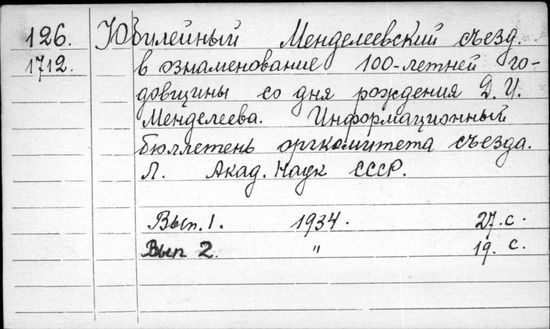 126. Юбилейный Менделеевский съезд.
1712. в ознаменование 100-летней го-
довщины со дня рождения Д. И.
Менделеева. Информационный
бюллетень оргкомитета съезда.
Л. Акад. Наук СССР.
Вып. 1. 1934. 27. с.
Вып 2. " 19. с.